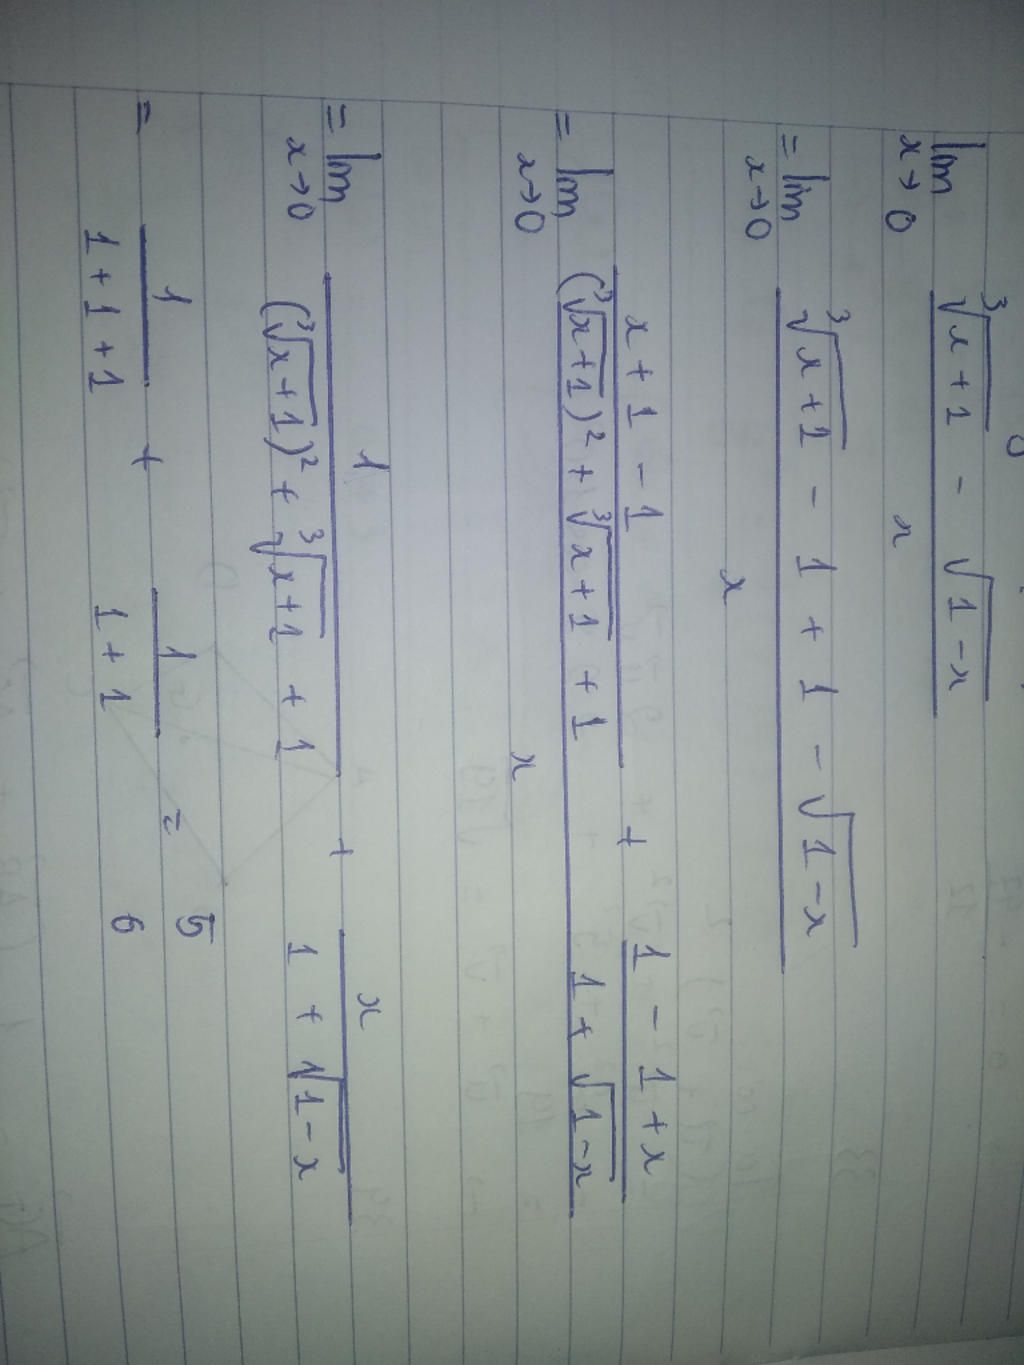 lim x→0 (∛(x+1) - √(1-x)) / x
= lim x→0 (∛(x+1) - 1 + 1 - √(1-x)) / x
= lim x→0 ((x+1-1) / ((∛(x+1))² + ∛(x+1) + 1) + (1-1+x) / (1+√(1-x))) / x
= lim x→0 1 / ((∛(x+1))² + ∛(x+1) + 1) + x / (1+√(1-x))
= 1 / (1+1+1) + 1 / (1+1) = 5 / 6